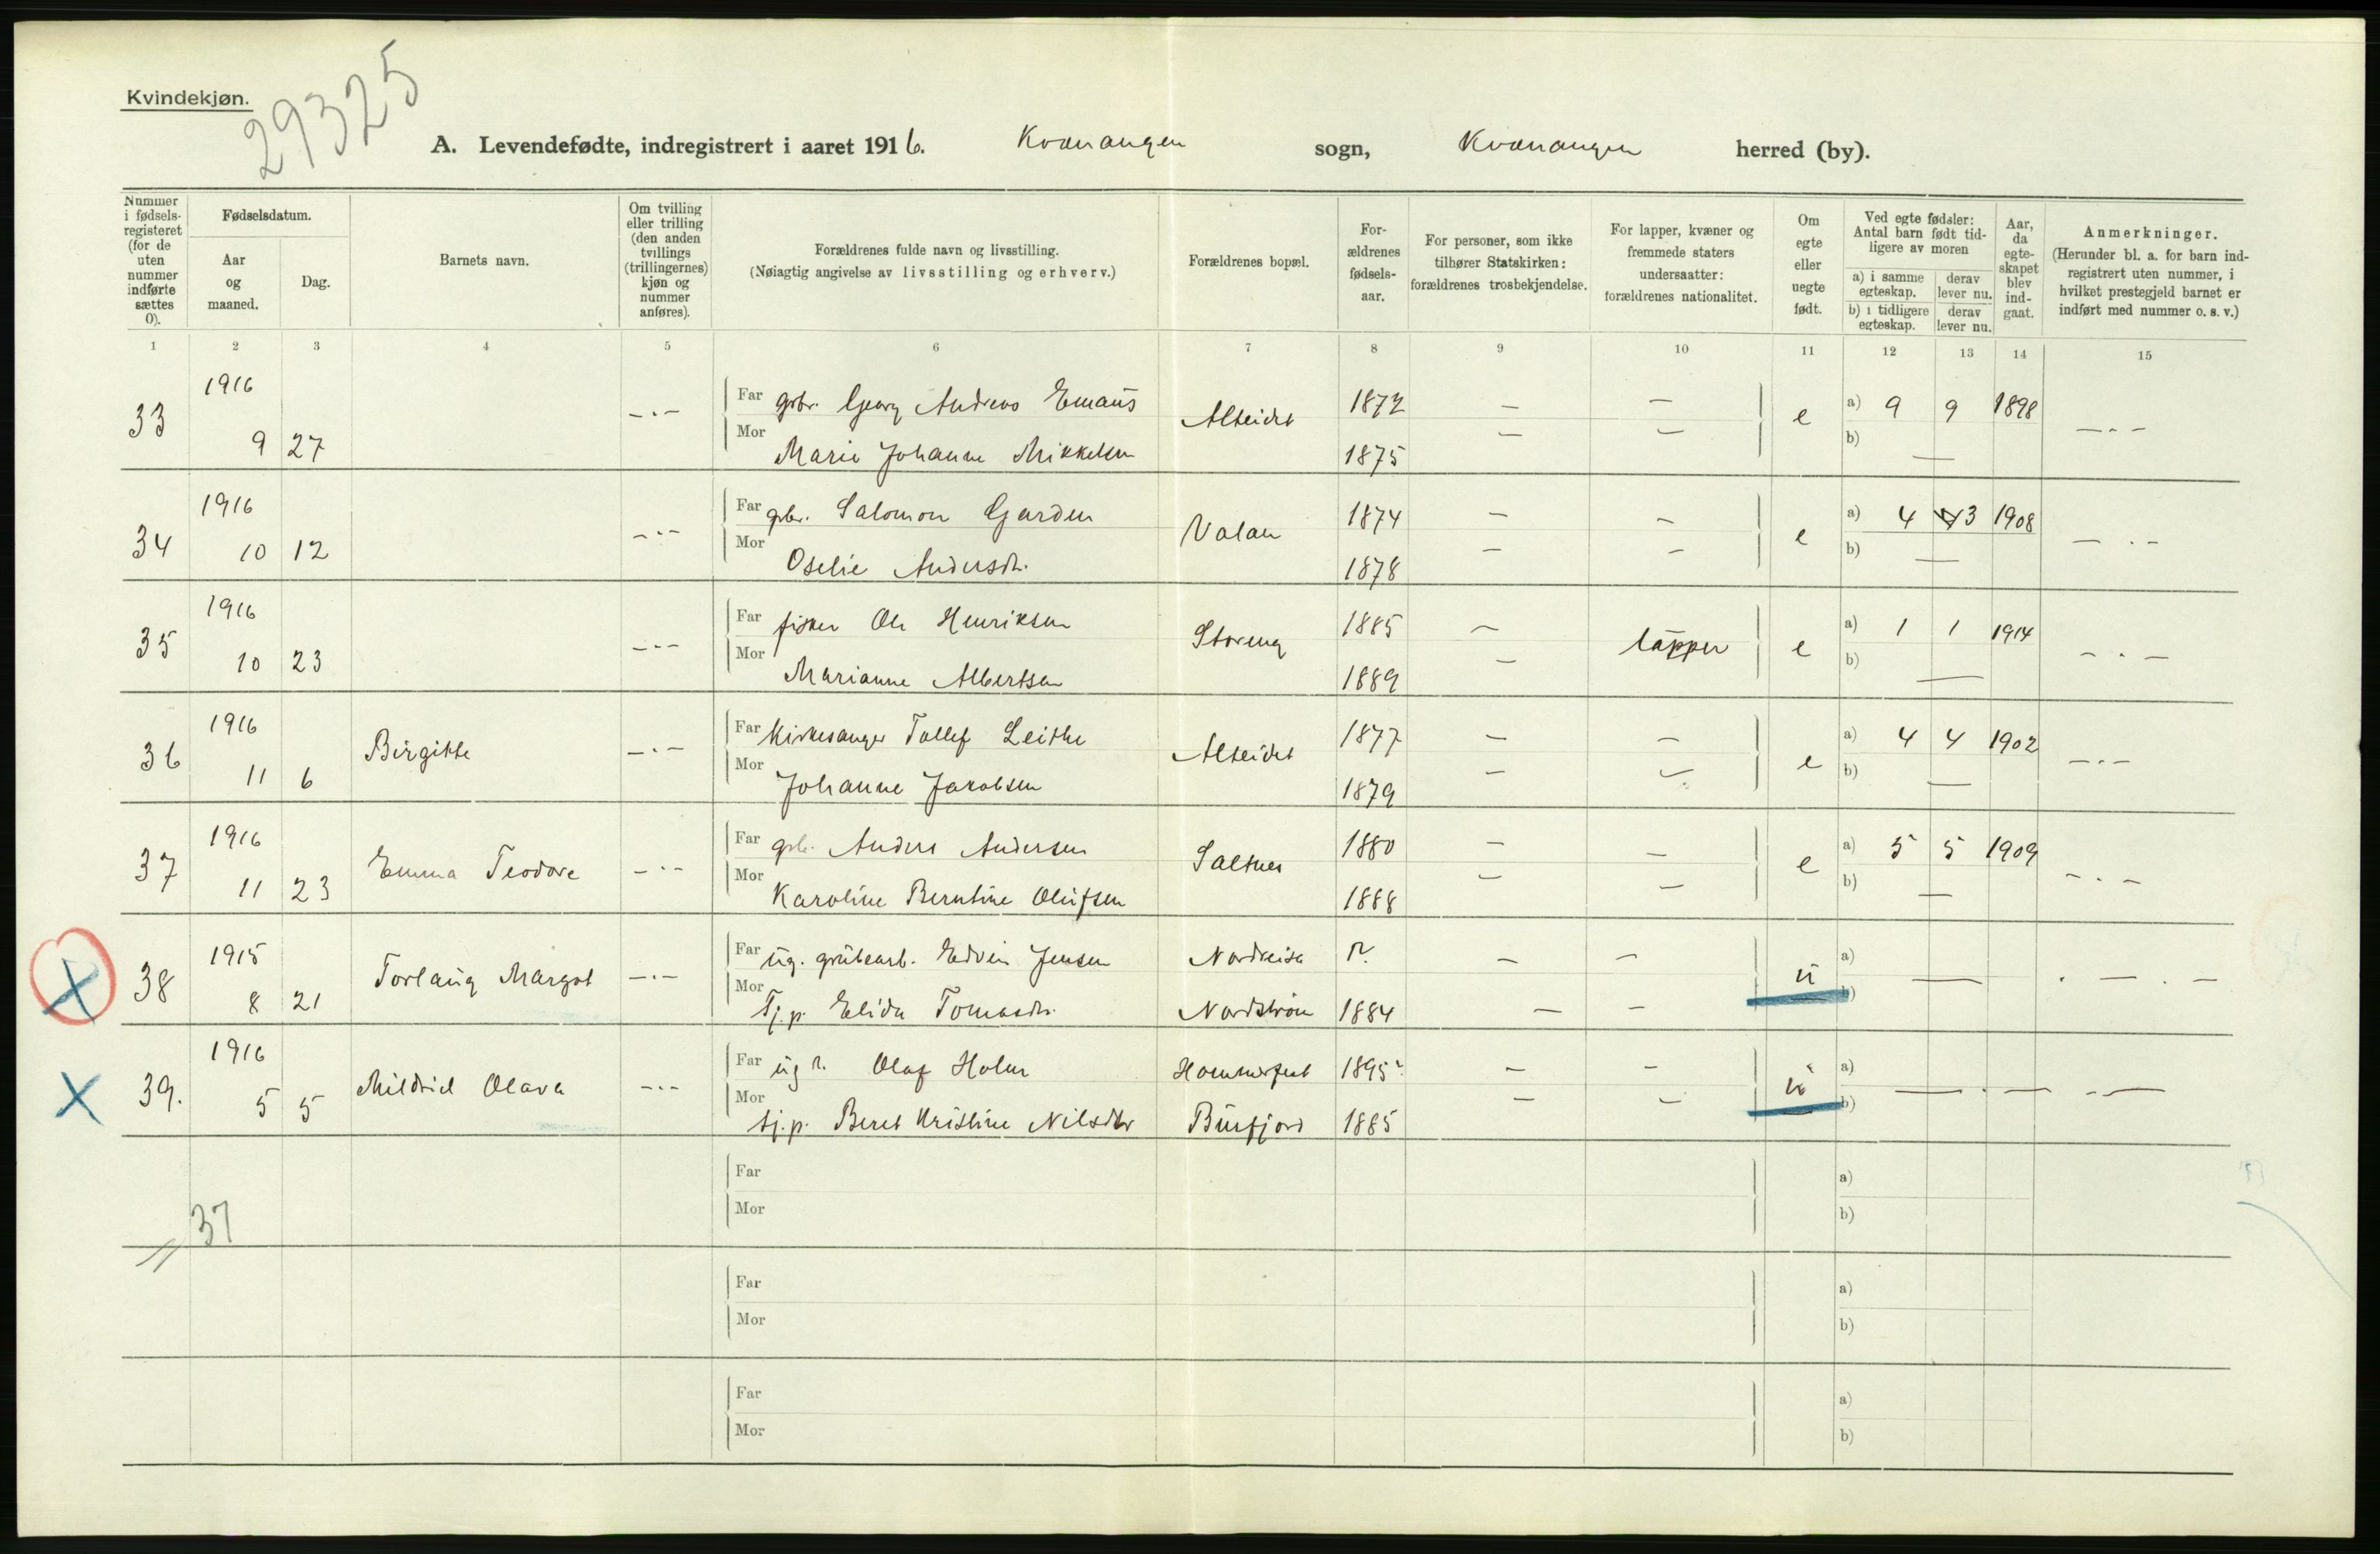 Kvindekjøn.
29325
A. Levendefødte, indregistrert i aaret 1916. Kvænangen sogn, Kvænangen herred (by).
Nummer i fødsels-registeret (for de uten nummer indførte sættes 0).
Fødselsdatum.
Aar og maaned.
Dag.
Barnets navn.
Om tvilling eller trilling (den anden tvillings (trillingernes) kjøn og nummer anføres).
Forældrenes fulde navn og livsstilling.
(Nøiagtig angivelse av livsstilling og erhverv.)
Forældrenes bopæl.
For-ældrenes fødsels-aar.
For personer, som ikke tilhører Statskirken: forældrenes trosbekjendelse.
For lapper, kvæner og fremmede staters undersaatter: forældrenes nationalitet.
Om egte eller uegte født.
Ved egte fødsler: Antal barn født tid-ligere av moren
a) i samme egteskap.
derav lever nu.
b) i tidligere egteskap.
derav lever nu.
Aar, da egte-skapet blev ind-gaat.
Anmerkninger.
(Herunder bl. a. for barn ind-registrert uten nummer, i hvilket prestegjeld barnet er indført med nummer o. s. v.)
1 2 3 4 5 6 7 8 9 10 11 12 13 14 15
1916
33 9 27 —·— Far gbr. Georg Andreas Emaus Alteidet 1872 — — e a) 9 9 1898 —·—
Mor Marie Johanne Mikkelsen 1875 — — b) —
1916
34 10 12 —·— Far gbr. Salomon Garden Valan 1874 — — e a) 4 3 1908 —·—
Mor Oselie Andersdtr. 1878 — — b) —
1916
35 10 23 —·— Far fisker Ole Henriksen Storeng 1885 — lapper e a) 1 1 1914 —·—
Mor Marianne Albertsen 1889 — b) —
1916
36 11 6 Birgitte —·— Far Kirkesanger Tollef Leithe Alteidet 1877 — — e a) 4 4 1902 —·—
Mor Johanne Jakobsen 1879 — — b) —
1916
37 11 23 Emma Teodore —·— Far gbr. Anders Andersen Saltnes 1880 — — e a) 5 5 1909 —·—
Mor Karoline Berntine Olufsen 1888 — — b) —
1915
X 38 8 21 Torlaug Margot —·— Far ug. grubearb. Edvin Jensen Nordreisa ?. — — u a) — · — · —
Mor Tj.p. Elida Tomasdtr. Nordstrøm 1884 — — b)
1916
X 39. 5 5 Mildrid Olava —·— Far ug Olaf Holm Hammerfest 1895? — — u a) — · — · —
Mor tj.p. Beret Kristine Nilsdtr Burfjord 1885 — — b)
Far a)
Mor b)
37
Far a)
Mor b)
Far a)
Mor b)